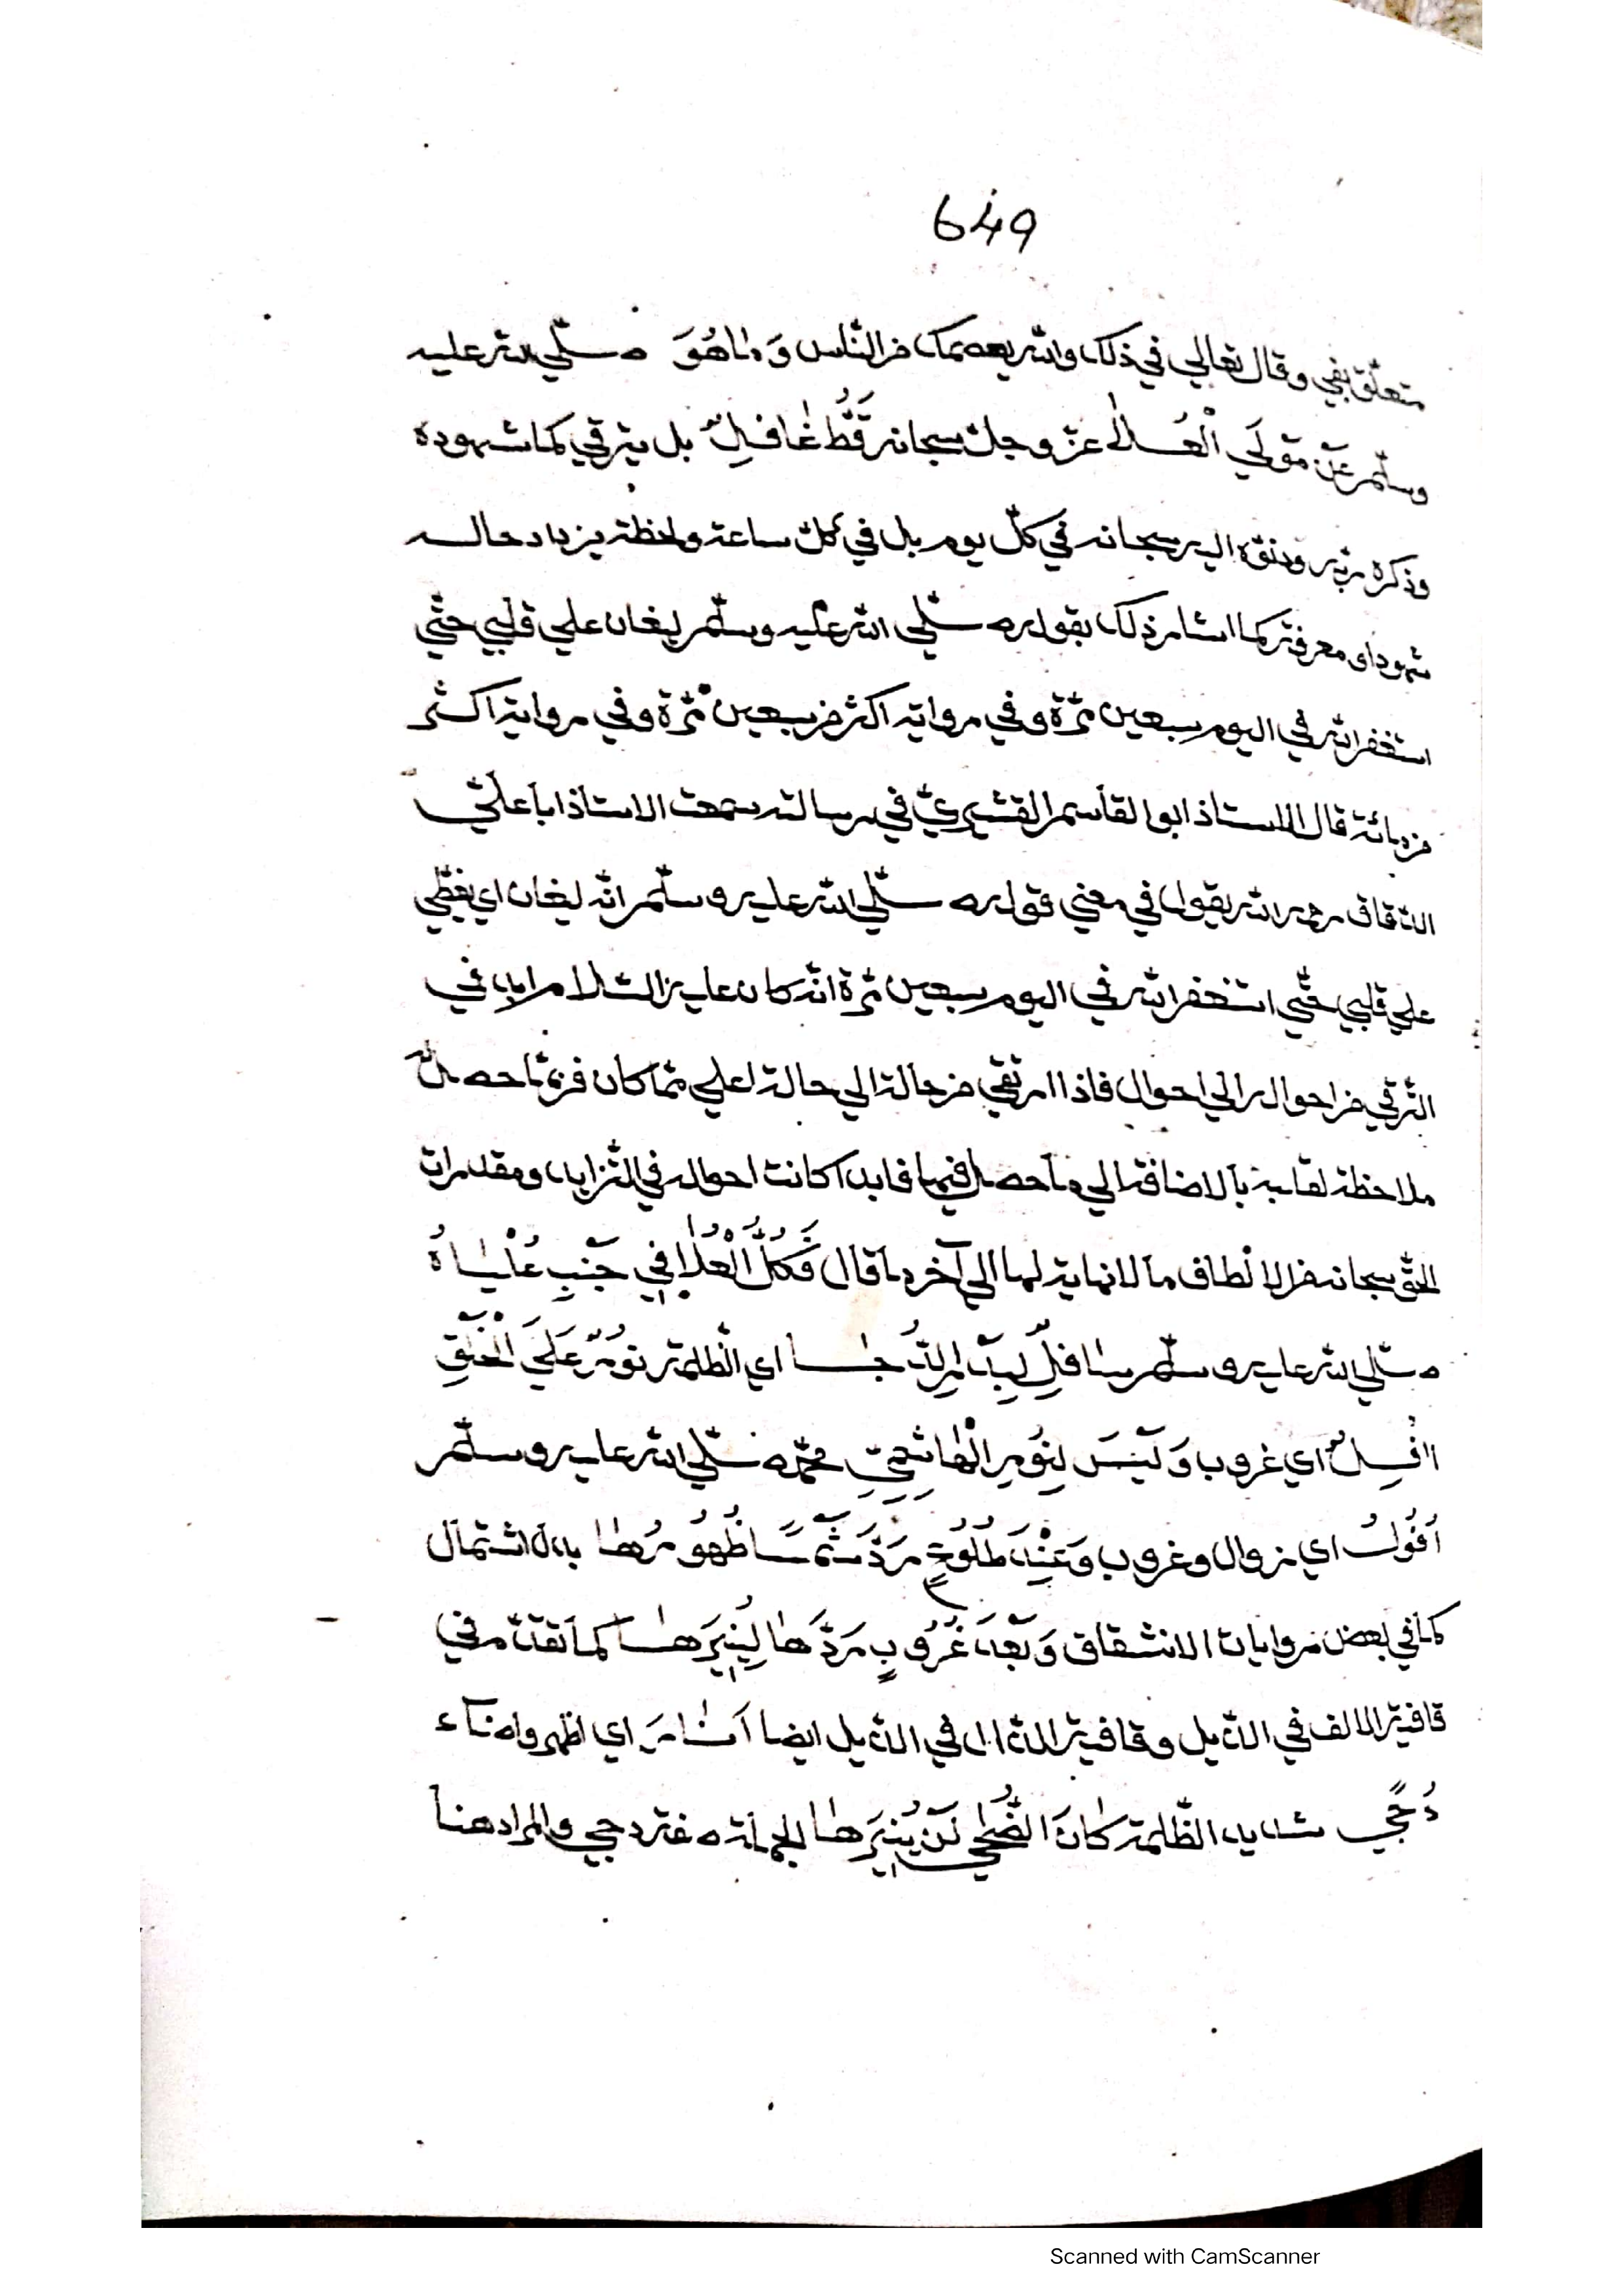 649
متعلّق بفي وقال تعالي في ذلك والله يعصمك من النّاس وَمٰا هُوَ صلّي الله عليه
وسلّم عَنْ مَوْلَي الْعُلاٰ عزّ وجلّ سبحانه قَطُّ غٰافِلٌ بل يترقي كما شهوده
وذكره ربّه اليه سبحانه في كلّ يوم بل في كلّ ساعة ولحظة يزداد حاله
شهودا ومعرفة كما اشار ذلك بقوله صلّي الله عليه وسلّم ليغان علي قلبي حتّي
استغفر الله في اليوم سبعين مرّة وفي رواية اكثر من سبعين مرّة وفي رواية اكثر
من مائة قال الاستاذ ابو القاسم القشيريّ في رسالته سمعت الاستاذ ابا عليّ
الدّقاق رحمه الله يقول في معني قوله صلّي الله عليه وسلّم انّه ليغان اي يغطّي
علي قلبي حتّي استغفر الله في اليوم سبعين مرّة انّه كان عليه السّلام ابدا في
التّرقي من احواله الي احوال فاذا ارتقي من حالة الي حالة اعلي ممّا كان فربّما حصل له
ملاحظة لقلبه بالاضافة الي ما حصل فيها فابدا كانت احواله في التّزايد ومقدرات
الحقّ سبحانه من الالطاف ما لا نهاية لها الي آخر ما قال فَكُلُّ الْعُلاٰ في جَنْبِ عُلْيٰاهُ
صلّي الله عليه وسلّم سٰافِلٌ لِبَدْرِ الدُّجٰا اي الظّلمة نُورٌ عَلَي الْخَلْقِ
اٰفِلٌ اي غروب وَلَيْسَ لِنُورِ الْهٰاشِمِيِّ محمّد صلّي الله عليه وسلّم
اُفُولٌ اي زوال وغروب وَعِنْدَ طُلُوعٍ رَدَّ شَمْسًا ظُهُورُهٰا بدل اشتمال
كما في بعض روايات الانشقاق وَبَعْدَ غُرُوبٍ رَدَّهٰا لِيُنِيرَهٰا كما تقدّم في
قافية الالف في الذّيل وقافية الدّال في الذّيل ايضا اَنٰارَ اي اظهر واضاء
دُجًي شديد الظّلمة كٰانَ الضُّحٰي لَنْ يُنِيرَهٰا الجملة صفة دجي والمراد هنا
Scanned with CamScanner